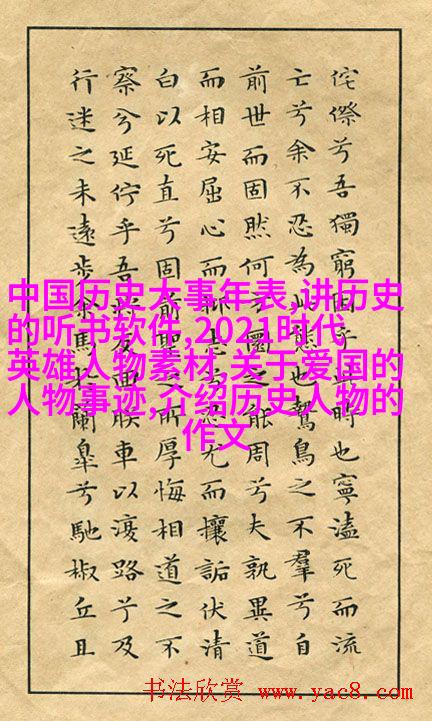 中国历史大事年表,讲历史
的听书软件,2021时代
英雄人物素材,关于爱国的
人物事迹,介绍历史人物的
作文
侘傺兮吾獨窮困乎此時也寧溘死而流
亡兮余不忍為此態也鷙鳥之不羣兮自
前世而固然何方圜之能周兮夫孰異道
而相安屈心而抑志忍尤而攘詬伏清
白以死直兮固前聖之所厚悔相道之不
察兮延佇乎吾將反回朕車以復路兮及
行迷之未遠步余馬於蘭皐兮馳椒丘且
书法欣赏 www.yac8.com